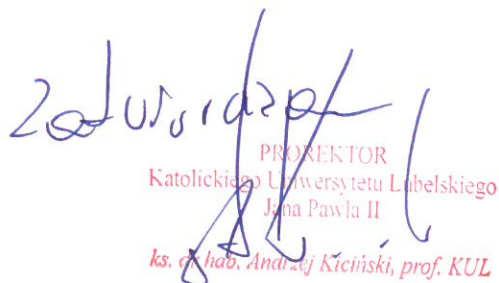 Zatwierdzam
PROREKTOR
Katolickiego Uniwersytetu Lubelskiego
Jana Pawła II
ks. dr hab. Andrzej Kiciński, prof. KUL